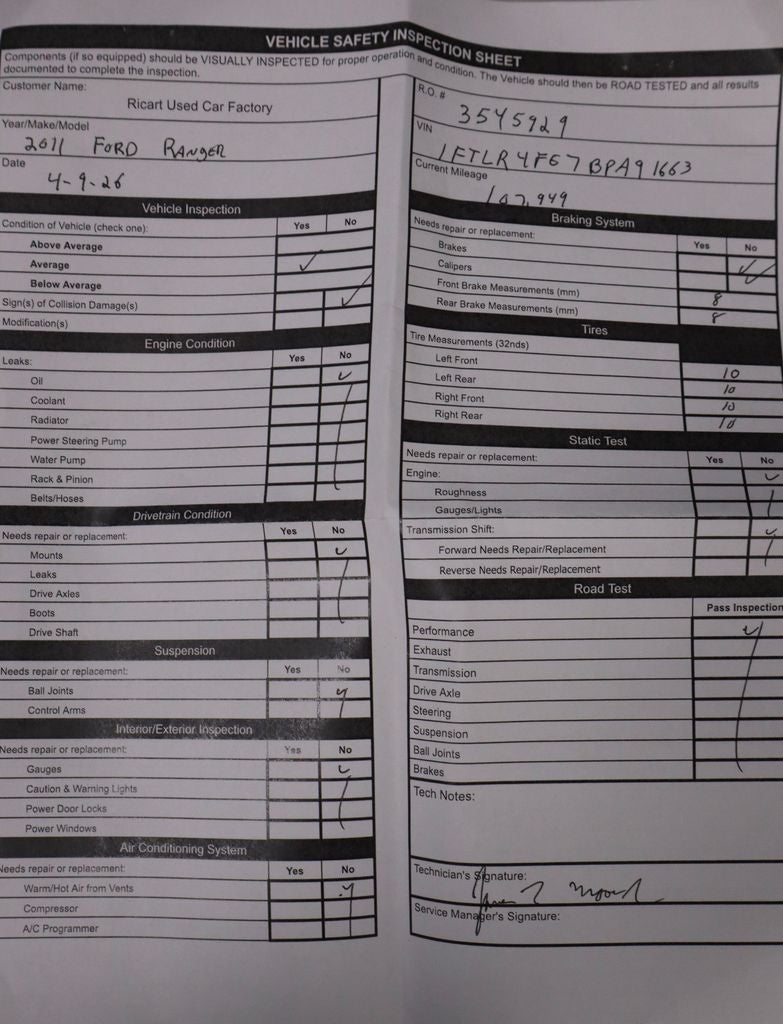 VEHICLE SAFETY INSPECTION SHEET
Components (if so equipped) should be VISUALLY INSPECTED for proper operation and condition. The Vehicle should then be ROAD TESTED and all results
documented to complete the inspection.
Customer Name:
Ricart Used Car Factory
Year/Make/Model
2011 FORD RANGER
Date
4-9-26
Vehicle Inspection
Condition of Vehicle (check one): Yes No
Above Average
Average ✓
Below Average
Sign(s) of Collision Damage(s) ✓
Modification(s)
Engine Condition
Leaks: Yes No
Oil ✓
Coolant
Radiator
Power Steering Pump
Water Pump
Rack & Pinion
Belts/Hoses
Drivetrain Condition
Needs repair or replacement: Yes No
Mounts ✓
Leaks
Drive Axles
Boots
Drive Shaft
Suspension
Needs repair or replacement: Yes No
Ball Joints ✓
Control Arms
Interior/Exterior Inspection
Needs repair or replacement: Yes No
Gauges ✓
Caution & Warning Lights
Power Door Locks
Power Windows
Air Conditioning System
Needs repair or replacement: Yes No
Warm/Hot Air from Vents ✓
Compressor
A/C Programmer
R.O. #
3545929
VIN
1FTLR4FE7BPA91663
Current Mileage
107,949
Braking System
Needs repair or replacement: Yes No
Brakes ✓
Calipers ✓
Front Brake Measurements (mm) 8
Rear Brake Measurements (mm) 8
Tires
Tire Measurements (32nds)
Left Front 10
Left Rear 10
Right Front 10
Right Rear 10
Static Test
Needs repair or replacement: Yes No
Engine: ✓
Roughness
Gauges/Lights
Transmission Shift: ✓
Forward Needs Repair/Replacement
Reverse Needs Repair/Replacement
Road Test
Pass Inspection
Performance ✓
Exhaust
Transmission
Drive Axle
Steering
Suspension
Ball Joints
Brakes
Tech Notes:
Technician's Signature:
Service Manager's Signature: